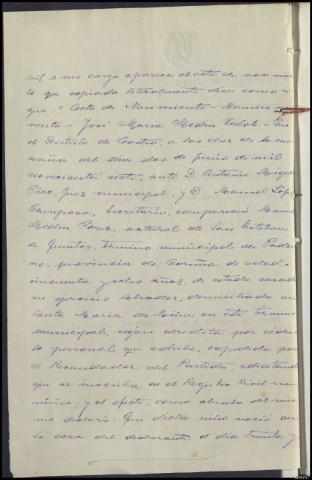 vil a mi cargo aparece el acta de nacimien
to que copiada literalmente dice como si
gue: Acta de Nacimiento - Numero
José Maria Medin Vidal - En
el Distrito de Castro, a las diez de la ma
ñana del dia dos de Junio de mil
novecientos siete, ante D. Antonio
Pico, Juez municipal, y D. Manuel López
Campos, Secretario, compareció Manuel
Medin Perez, natural de San Esteban
de Quintas, término municipal de Pader
ne, provincia de Coruña, de edad
cincuenta y ocho años, de estado casado
su ejercicio labrador, domiciliado en
Santa Maria de en este término
municipal, segun acredita por cédu
la personal que exhibe, expedida por
el Recaudador del Partido, solicitando
que se inscriba en el Registro Civil un
niño; y al efecto, como abuelo del mis
mo declaró: Que dicho niño nació en
la casa del declarante el dia treinta y